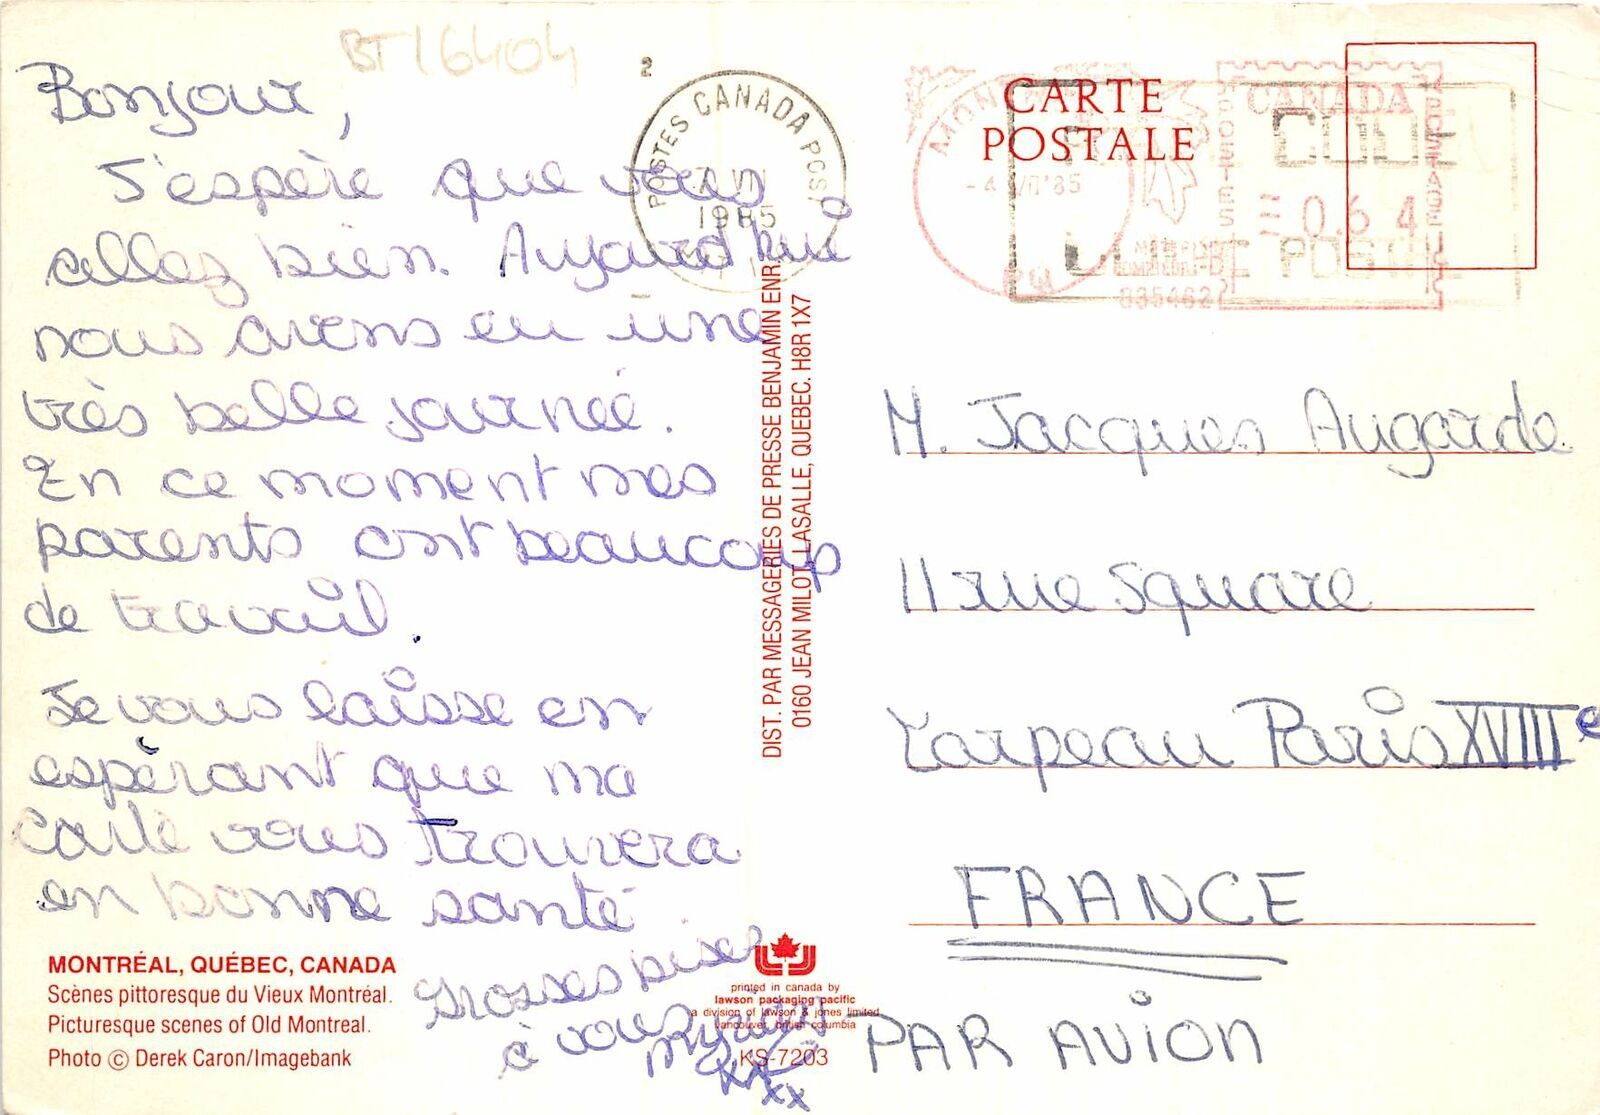 BT16404
Bonjour,
J'espère que vous
allez bien. Aujourd'hui
nous avons eu une
très belle journée.
En ce moment mes
parents ont beaucoup
de travail.
Je vous laisse en
espérant que ma
carte vous trouvera
en bonne santé
Grosses bises
à vous
xx
xx
MONTRÉAL, QUÉBEC, CANADA
Scènes pittoresque du Vieux Montréal.
Picturesque scenes of Old Montreal.
Photo © Derek Caron/Imagebank
DIST. PAR MESSAGERIES DE PRESSE BENJAMIN ENR.
0160 JEAN MILOT LASALLE, QUEBEC. H8R 1X7
printed in canada by
lawson packaging pacific
a division of lawson & jones limited
vancouver, british columbia
KS-7203
2
POSTES CANADA POST
1985
CARTE
POSTALE
CANADA
POSTES
POSTAGE
0.6 4
CODE
POSTAL
835462
M. Jacques Augarde
11 rue Square
Carpeau Paris XVIIIe
FRANCE
PAR AVION